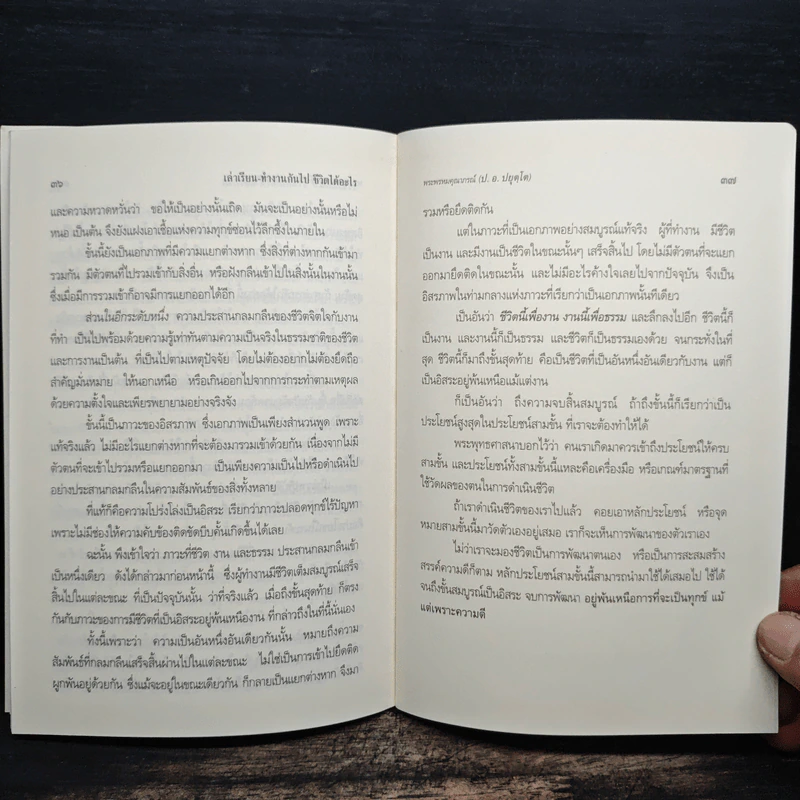 ๓๖
เล่าเรียน-ทำงานกันไป ชีวิตได้อะไร
และความหวาดหวั่นว่า ขอให้เป็นอย่างนั้นเถิด มันจะเป็นอย่างนั้นหรือไม่
หนอ เป็นต้น จึงยังแฝงเอาเชื้อแห่งความทุกข์ซ่อนไว้ลึกซึ้งในภายใน
ขั้นนี้ยังเป็นเอกภาพที่มีความแยกต่างหาก ซึ่งสิ่งที่ต่างหากกันเข้ามา
รวมกัน มีตัวตนที่ไปรวมเข้ากับสิ่งอื่น หรือฝังกลืนเข้าไปในสิ่งนั้นในงานนั้น
ซึ่งเมื่อมีการรวมเข้าก็อาจมีการแยกออกได้อีก
ส่วนในอีกระดับหนึ่ง ความประสานกลมกลืนของชีวิตจิตใจกับงาน
ที่ทำ เป็นไปพร้อมด้วยความรู้เท่าทันตามความเป็นจริงในธรรมชาติของชีวิต
และการงานเป็นต้น ที่เป็นไปตามเหตุปัจจัย โดยไม่ต้องอยากไม่ต้องยึดถือ
สำคัญมั่นหมาย ให้นอกเหนือ หรือเกินออกไปจากการกระทำตามเหตุผล
ด้วยความตั้งใจและเพียรพยายามอย่างจริงจัง
ขั้นนี้เป็นภาวะของอิสรภาพ ซึ่งเอกภาพเป็นเพียงสำนวนพูด เพราะ
แท้จริงแล้ว ไม่มีอะไรแยกต่างหากที่จะต้องมารวมเข้าด้วยกัน เนื่องจากไม่มี
ตัวตนที่จะเข้าไปรวมหรือแยกออกมา เป็นเพียงความเป็นไปหรือดำเนินไป
อย่างประสานกลมกลืนในความสัมพันธ์ของสิ่งทั้งหลาย
ที่แท้ก็คือความโปร่งโล่งเป็นอิสระ เรียกว่าภาวะปลอดทุกข์ไร้ปัญหา
เพราะไม่มีช่องให้ความคับข้องติดขัดบีบคั้นเกิดขึ้นได้เลย
ฉะนั้น พึงเข้าใจว่า ภาวะที่ชีวิต งาน และธรรม ประสานกลมกลืนเข้า
เป็นหนึ่งเดียว ดังได้กล่าวมาก่อนหน้านี้ ซึ่งผู้ทำงานมีชีวิตเต็มสมบูรณ์เสร็จ
สิ้นไปในแต่ละขณะ ที่เป็นปัจจุบันนั้น ว่าที่จริงแล้ว เมื่อถึงขั้นสุดท้าย ก็ตรง
กันกับภาวะของการมีชีวิตที่เป็นอิสระอยู่พ้นเหนืองาน ที่กล่าวถึงในที่นี้นั่นเอง
ทั้งนี้เพราะว่า ความเป็นอันหนึ่งอันเดียวกันนั้น หมายถึงความ
สัมพันธ์ที่กลมกลืนเสร็จสิ้นผ่านไปในแต่ละขณะ ไม่ใช่เป็นการเข้าไปยึดติด
ผูกพันอยู่ด้วยกัน ซึ่งแม้จะอยู่ในขณะเดียวกัน ก็กลายเป็นแยกต่างหาก จึงมา
พระพรหมคุณาภรณ์ (ป. อ. ปยุตฺโต)
๓๗
รวมหรือยึดติดกัน
แต่ในภาวะที่เป็นเอกภาพอย่างสมบูรณ์แท้จริง ผู้ที่ทำงาน มีชีวิต
เป็นงาน และมีงานเป็นชีวิตในขณะนั้นๆ เสร็จสิ้นไป โดยไม่มีตัวตนที่จะแยก
ออกมายึดติดในขณะนั้น และไม่มีอะไรค้างใจเลยไปจากปัจจุบัน จึงเป็น
อิสรภาพในท่ามกลางแห่งภาวะที่เรียกว่าเป็นเอกภาพนั้นทีเดียว
เป็นอันว่า ชีวิตนี้เพื่องาน งานนี้เพื่อธรรม และลึกลงไปอีก ชีวิตนี้ก็
เป็นงาน และงานนี้ก็เป็นธรรม และชีวิตก็เป็นธรรมเองด้วย จนกระทั่งในที่
สุด ชีวิตนี้ก็มาถึงขั้นสุดท้าย คือเป็นชีวิตที่เป็นอันหนึ่งอันเดียวกับงาน แต่ก็
เป็นอิสระอยู่พ้นเหนือแม้แต่งาน
ก็เป็นอันว่า ถึงความจบสิ้นสมบูรณ์ ถ้าถึงขั้นนี้ก็เรียกว่าเป็น
ประโยชน์สูงสุดในประโยชน์สามขั้น ที่เราจะต้องทำให้ได้
พระพุทธศาสนาบอกไว้ว่า คนเราเกิดมาควรเข้าถึงประโยชน์ให้ครบ
สามขั้น และประโยชน์ทั้งสามขั้นนี้แหละคือเครื่องมือ หรือเกณฑ์มาตรฐานที่
ใช้วัดผลของตนในการดำเนินชีวิต
ถ้าเราดำเนินชีวิตของเราไปแล้ว คอยเอาหลักประโยชน์ หรือจุด
หมายสามขั้นนี้มาวัดตัวเองอยู่เสมอ เราก็จะเห็นการพัฒนาของตัวเราเอง
ไม่ว่าเราจะมองชีวิตเป็นการพัฒนาตนเอง หรือเป็นการสะสมสร้าง
สรรค์ความดีก็ตาม หลักประโยชน์สามขั้นนี้สามารถนำมาใช้ได้เสมอไป ใช้ได้
จนถึงขั้นสมบูรณ์เป็นอิสระ จบการพัฒนา อยู่พ้นเหนือการที่จะเป็นทุกข์ แม้
แต่เพราะความดี